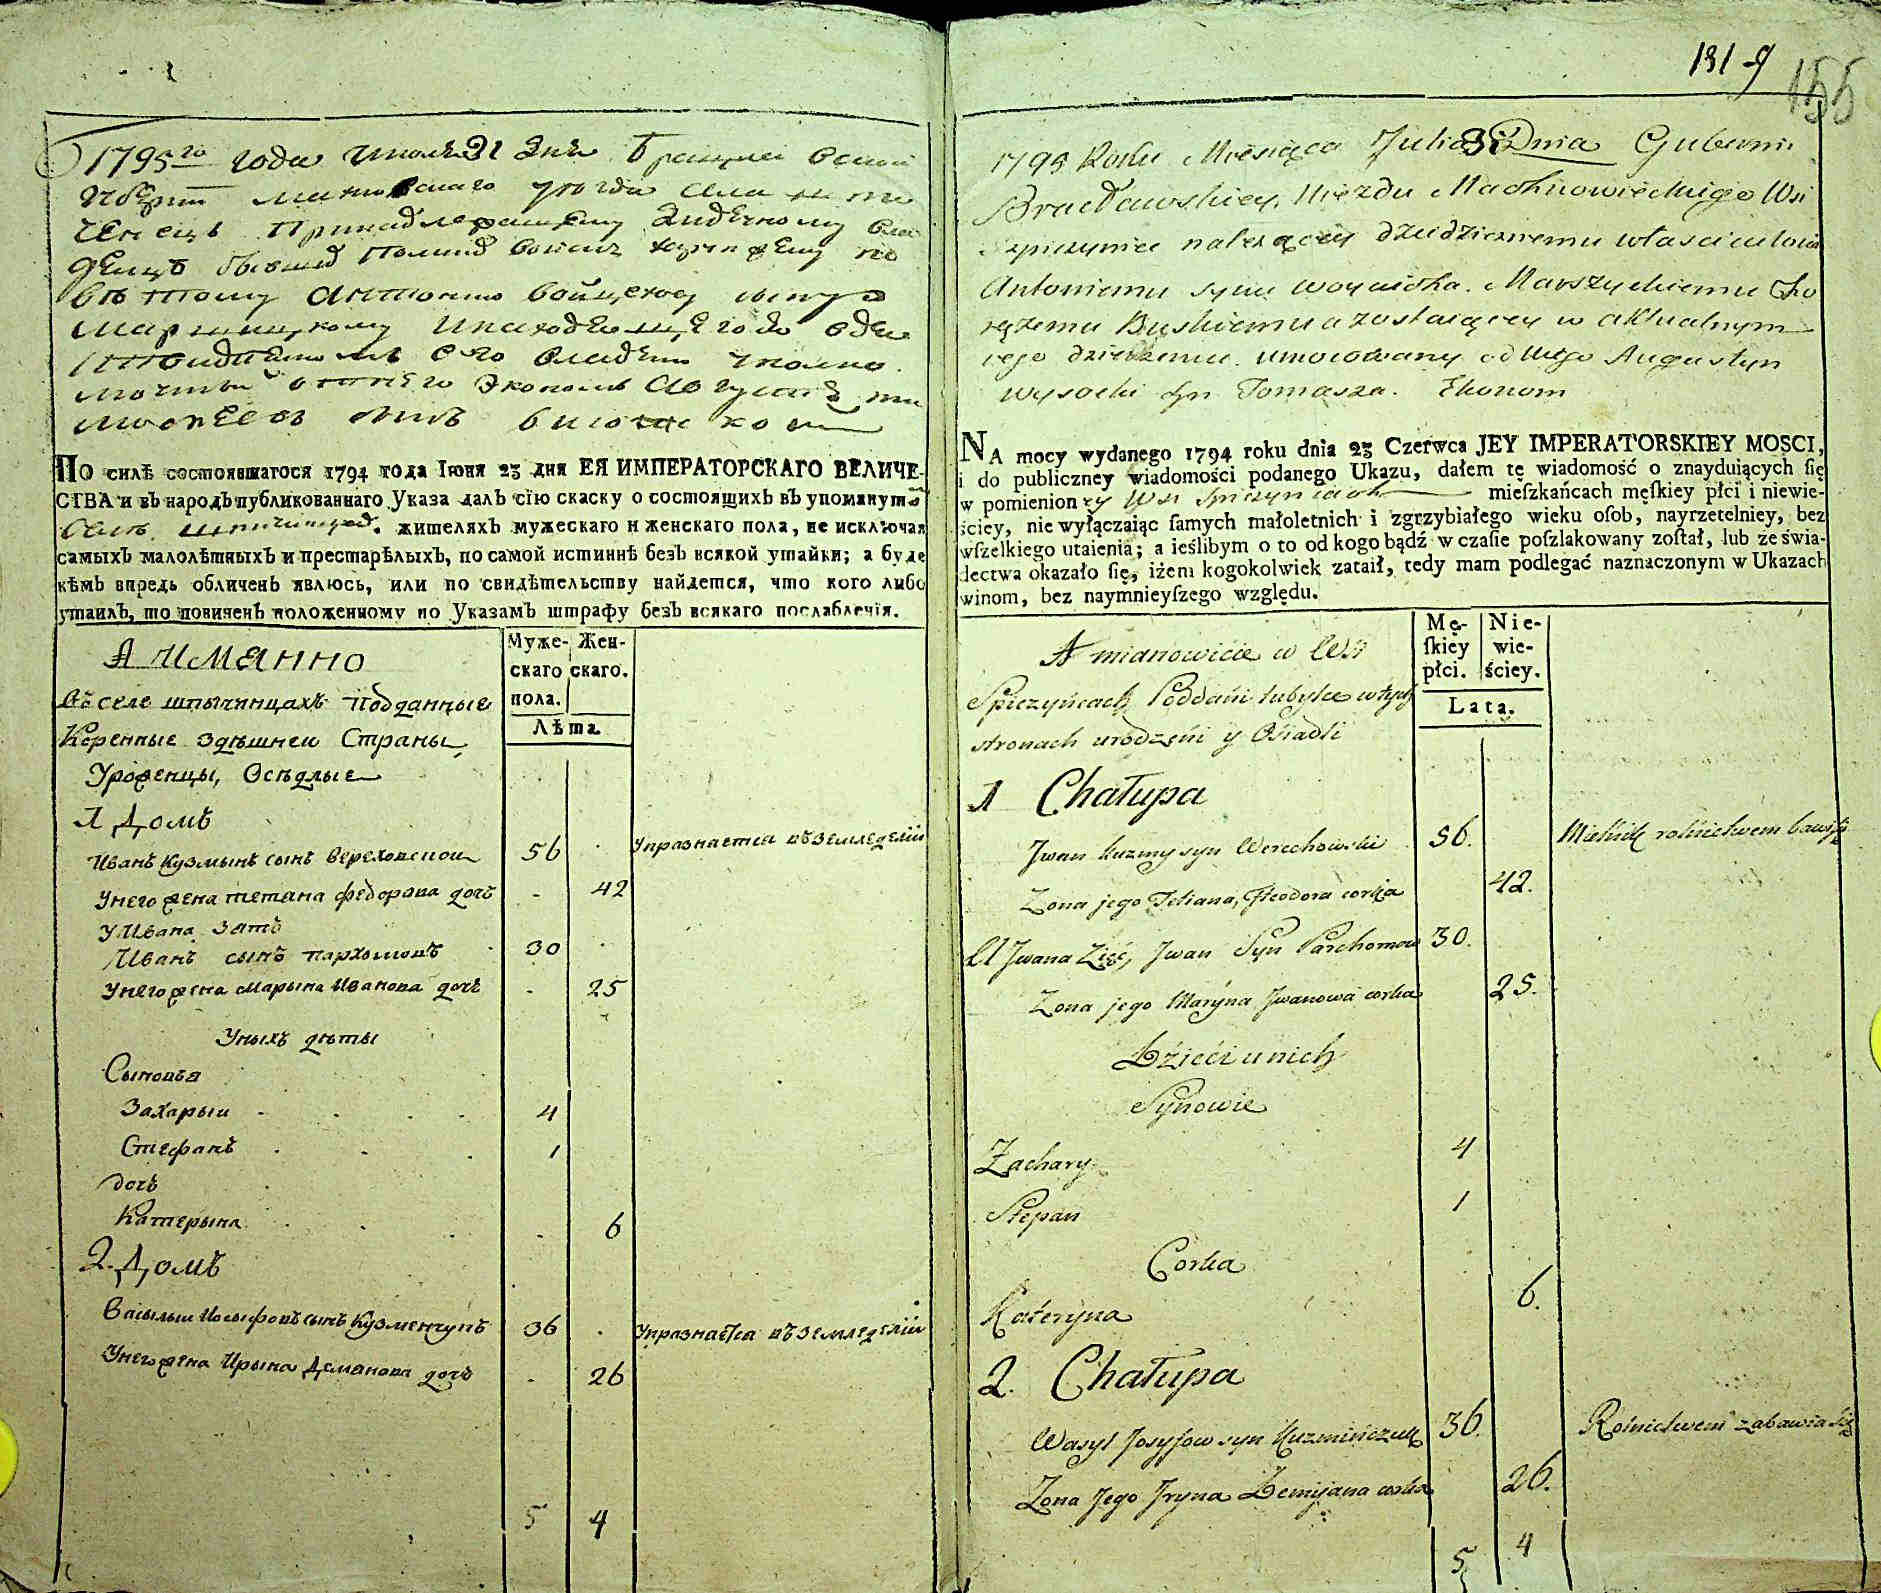 1795го года июля 31 дня Брацлавской
губерн махновскаго уезда села шпи
ченецъ принадлежащему дидичному вла
дельцу бывшей польщи войскъ хоружему по
ветному антонию войцехову сыну
маршицкому и находящегося в де
его владении уполно
моченый от него экономъ августинъ
сынъ висоцкой
По силѣ состоявшагося 1794 года Iюня 23 дня ЕЯ ИМПЕРАТОРСКАГО ВЕЛИЧЕ-
СТВА и въ народъ публикованнаго Указа далъ сїю скаску о состоящихъ въ упомянутомъ
селе шпичинцах. жителяхъ мужескаго и женскаго пола, не исключая
самыхъ малолѣтныхъ и престарѣлыхъ, по самой истиннѣ безъ всякой утайки; а буде
кѣмъ впредь обличенъ явлюсь, или по свидѣтельству найдется, что кого либо
утаилъ, то повиненъ положенному по Указамъ штрафу безъ всякаго послабленїя.
А имянно
Муже- Жен-
скаго скаго.
пола.
Лѣта
въ селе шпычинцахъ подданные
Коренные здѣшнеи Страны
Уроженцы, Осѣдлые
1 Домъ
Иванъ Кузмынъ сынъ Вереховскои 56 Упразнается въ земледелїи
У него жена тетяна федорова дочь 42
У Ивана Зять
Иванъ сынъ пархомовъ 30
У него жена Марына Иванова дочь 25
У ныхъ дѣты
Сыновья
Захарыи 4
Стефанъ 1
дочь
Катерына 6
2 Домъ
Васылыи Иосыфовъ сынъ Кузменчукъ 36 Упразнается въ земледелїи
У него жена Ирына Деманова дочь 26
5 4
131-9
155
1795 Roku Miesiąca Julia 31 Dnia Guberni
Bracławskiey, Uiezdu Machnowieckiego Wsi
Szpiczyniec należącey dziedzicznemu właścicielowi
Antoniemu synu Woyciecha Marszyckiemu Cho
rążemu Buskiemu a zostaiącey w aktualnym
iego dzierżeniu umocowany od niego Augustyn
Wysocki syn Tomasza. Ekonom
NA mocy wydanego 1794 roku dnia 23 Czerwca JEY IMPERATORSKIEY MOSCI,
i do publiczney wiadomości podanego Ukazu, dałem tę wiadomość o znayduiących ſię
w pomienioney Wsi Szpiczyńcach mieſzkańcach męſkiey płci i niewie-
ściey, nie wyłączaiąc ſamych małoletnich i zgrzybiałego wieku oſob, nayrzetelniey, bez
wſzelkiego utaienia; a ieślibym o to od kogo bądź w czaſie poſzlakowany zoſtał, lub że świa-
dectwa okazało ſię, iżem kogokolwiek zataił, tedy mam podlegać naznaczonym w Ukazach
winom, bez naymnieyſzego względu.
A mianowicie w Wsi
Mę- Nie-
ſkiey wie-
płci. ściey.
Lata.
Spiczyńcach Poddani tubylce w tych
stronach urodzeni y Osiadli
1 Chałupa
Jwan Kuzmy syn Werechowski 56. Mielnik rolnictwem bawi się
Zona jego Tetiana, Fteodora corka 42.
U Jwana Zięć, Jwan Syn Parchomow 30.
Zona jego Maryna Jwanowa corka 25.
Dzieci u nich
Synowie
Zachary 4
Stepan 1
Corka
Kateryna 6.
2. Chałupa
Wasyl Josyfow syn Kuzmińczuk 36. Rolnictwem zabawia się
Zona Jego Jryna Demijana corka 26.
5 4